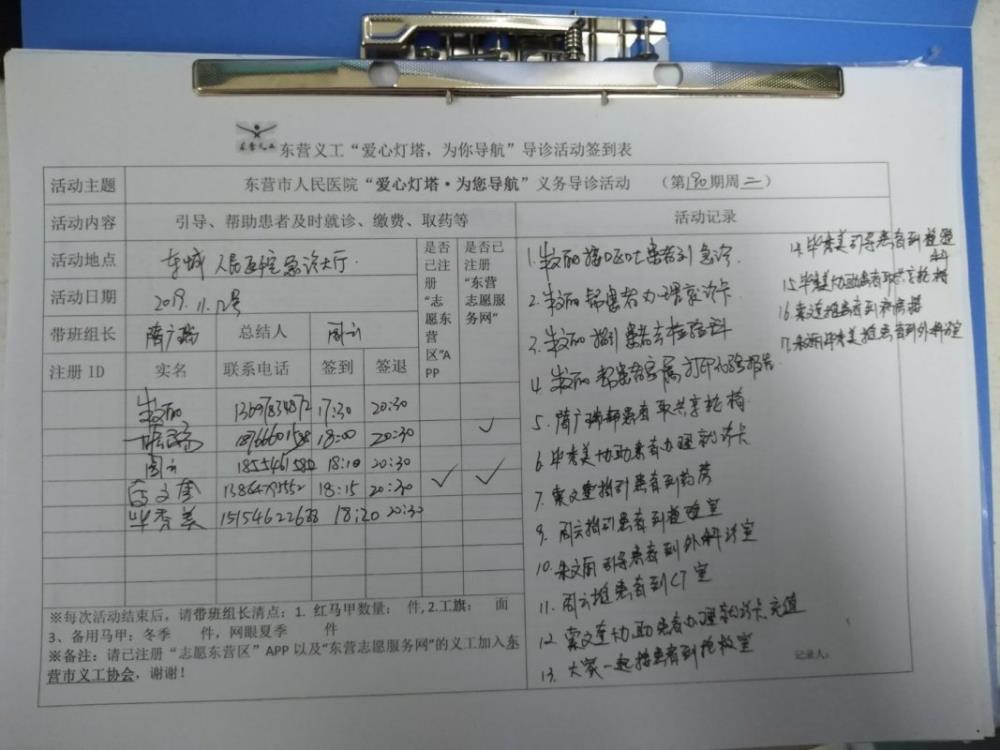 东营义工
东营义工“爱心灯塔，为你导航”导诊活动签到表
活动主题 东营市人民医院“爱心灯塔·为您导航”义务导诊活动 （第190期周二）
活动内容 引导、帮助患者及时就诊、缴费、取药等 活动记录
活动地点 东城人民医院急诊大厅.
活动日期 2019.11.12号
带班组长 隋广瑞 总结人 周云
是否已注册“志愿东营区”APP
是否已注册“东营志愿服务网”
注册 ID 实名 联系电话 签到 签退
17:30 20:30
18:00 20:30
周云 18:10 20:30
18:15 20:30
毕秀美 15154622688 18:20 20:30
※每次活动结束后，请带班组长清点：1. 红马甲数量： 件，2.工旗： 面
3、备用马甲：冬季 件，网眼夏季 件
※备注：请已注册“志愿东营区”APP 以及“东营志愿服务网”的义工加入东
营市义工协会，谢谢！
1. 患者到急诊
2. 帮患者办理就诊卡
3. 指引患者去检验科
4. 帮患者家属打印化验报告
5. 隋广瑞帮患者取共享轮椅
6. 毕秀美协助患者办理就诊卡
7. 指引患者到药房
9. 周云指引患者到检验室
10. 朱文丽引导患者到外科诊室
11. 周云推患者到CT室
12. 协助患者办理就诊卡充值
13. 大家一起推患者到抢救室
14. 毕秀美引导患者到检验科
15. 毕秀美协助患者取共享轮椅
16. 推患者到病房楼
17. 朱文丽毕秀美推患者到外科室
记录人：